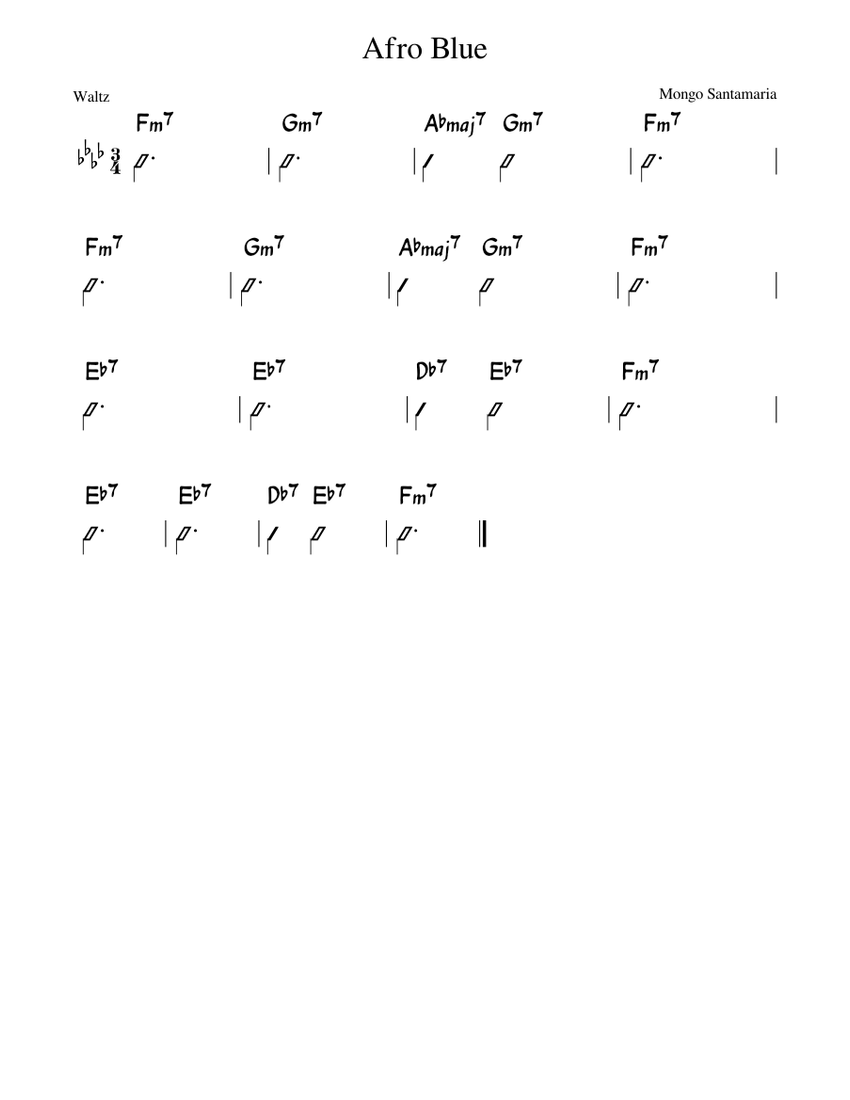 Afro Blue
Waltz
Mongo Santamaria
Fm7 Gm7 A♭maj7 Gm7 Fm7
3
4
Fm7 Gm7 A♭maj7 Gm7 Fm7
E♭7 E♭7 D♭7 E♭7 Fm7
E♭7 E♭7 D♭7 E♭7 Fm7